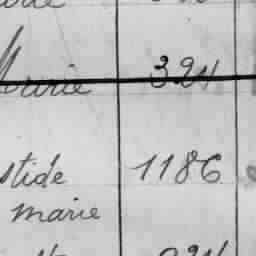 Marie 324
stide 1186
marie